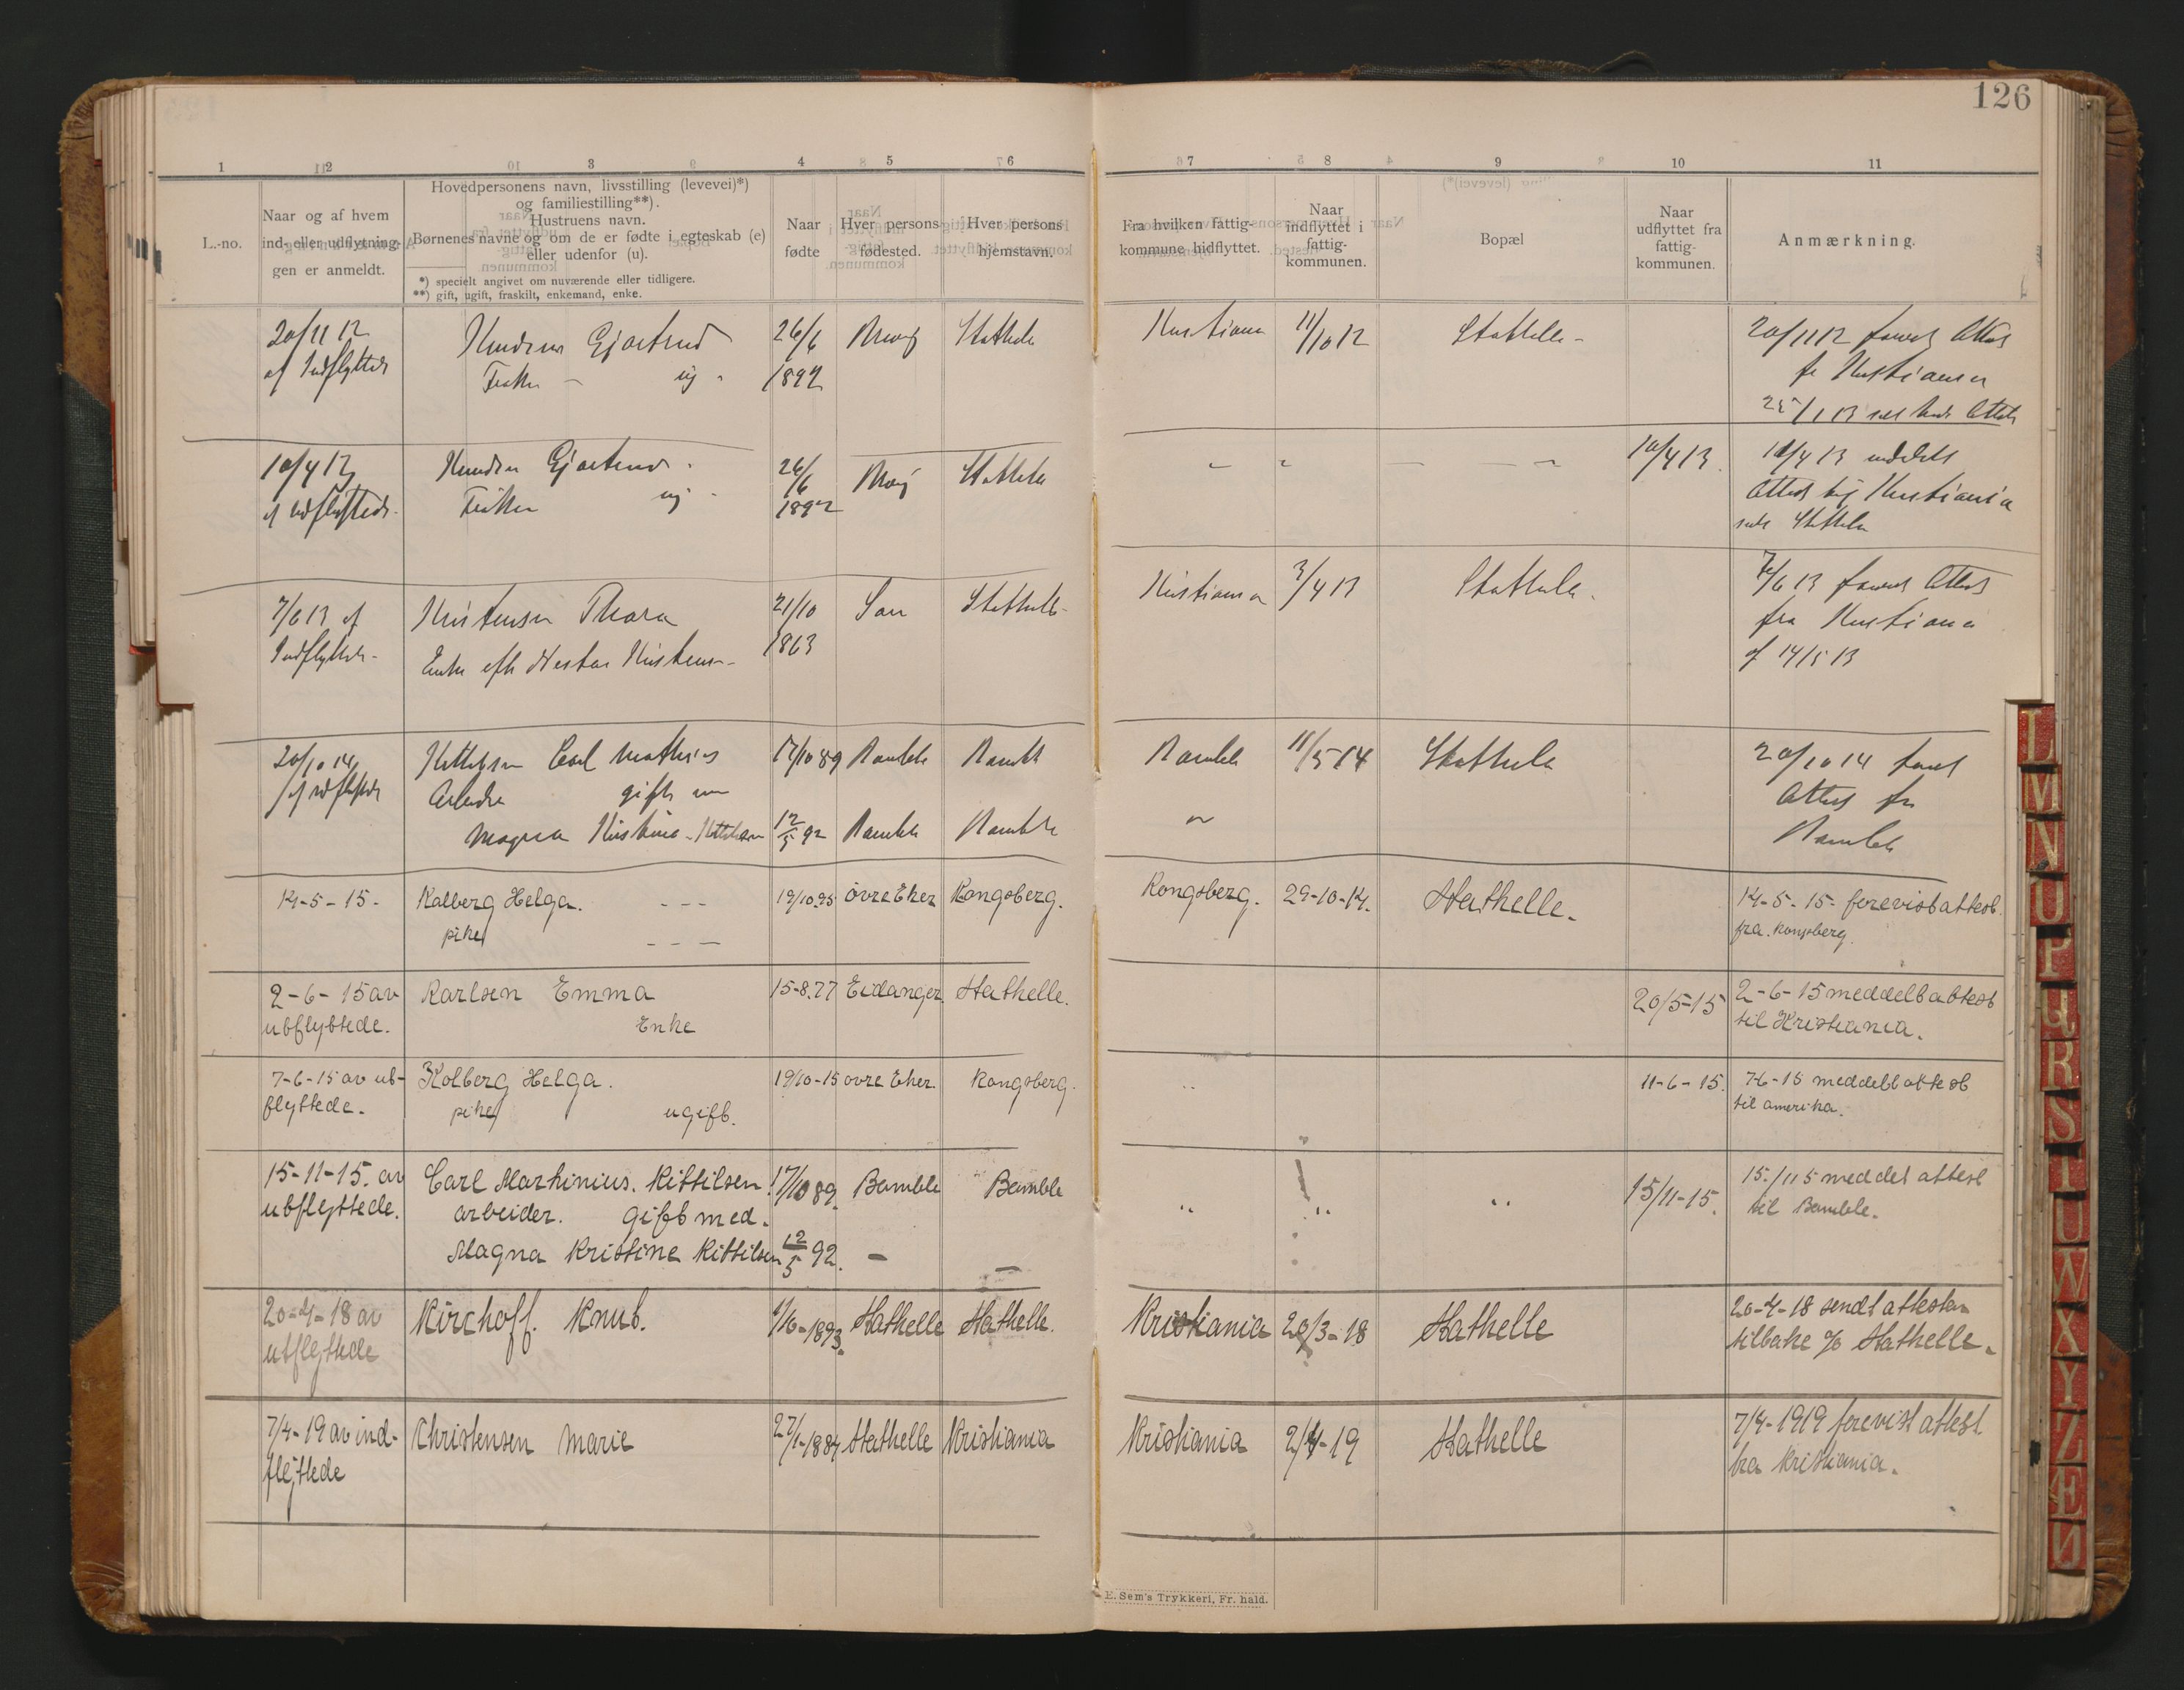 126
1 2 3 4 5 6 7 8 9 10 11
L.-no.
Naar og af hvem
ind- eller udflytnin-
gen er anmeldt.
Hovedpersonens navn, livsstilling (levevei)*)
og familiestilling**).
Hustruens navn.
Børnenes navne og om de er fødte i egteskab (e)
eller udenfor (u).
*) specielt angivet om nuværende eller tidligere.
**) gift, ugift, fraskilt, enkemand, enke.
Naar
fødte
Hver persons
fødested.
Hver persons
hjemstavn.
Fra hvilken fattig-
kommune hidflyttet.
Naar
indflyttet i
fattig-
kommunen.
Bopæl
Naar
udflyttet fra
fattig-
kommunen.
Anmærkning.
20/11 12 Knudsen Gjertrud 26/6 Stathelle Kristiania 11/10 12 Stathelle 20/11 12 Attest
af Indflyttede Frøken 1892 fr Kristiania
25/1 13 Attest
10/4 13 Knudsen Gjertrud 26/6 Stathelle 10/4 13 10/4 13 meddelt
af udflyttede Frøken 1892 Attest til Kristiania
Stathelle
7/6 13 af Kristensen Thora 21/10 Son Stathelle Kristiania 3/4 13 Stathelle 7/6 13 Attest
Indflyttede Enke efter Kristensen 1863 fra Kristiania
af 14/5 13
20/10 14 Kittilsen Carl Mathius 17/10 89 Bamble Bamble Bamble 11/5 14 Stathelle 20/10 14
af indflyttede Arbeider gift m Attest fra
Magna Kristine Kittilsen 12/5 92 Bamble Bamble Bamble
14-5-15. Kolberg Helga. - - - 19/10.95 øvre Eker Kongsberg. Kongsberg. 29-10-14. Stathelle. 14-5-15. forevist attest
pike - - - fra. Kongsberg.
2-6-15 av Karlsen Emma 15-8.77 Eidanger. Stathelle. 20/5-15 2-6-15 meddelt attest
utflyttede. Enke til Kristiania.
7-6-15 av ut- Kolberg Helga. 19/10-15 øvre Eker. Kongsberg. 11-6-15. 7-6-15 meddelt attest
flyttede. pike ugift. til amerika.
15-11-15. av Carl Marthinius. Kittilsen. 17/10 89. Bamble Bamble 15/11-15. 15./11 5 meddel attest
utflyttede. arbeider. gift med. til Bamble.
Magna Kristine Kittilsen 12/5 92. - -
20-4-18 av Kirchoff. Knut. 1/6-1893. Stathelle Stathelle. Kristiania 20/3-18 Stathelle 20-4-18 sendt attesten
utflyttede tilbake % Stathelle.
7/4-19 av ind- Christensen Marie 27/1-1884 Stathelle Kristiania Kristiania 2/4-19 Stathelle 7/4-1919 forevist attest
flyttede fra Kristiania.
E. Sem's Trykkeri, Fr. hald.
L
M
N
O
P
Q
R
S
T
U
W
X
Y
Z
Æ